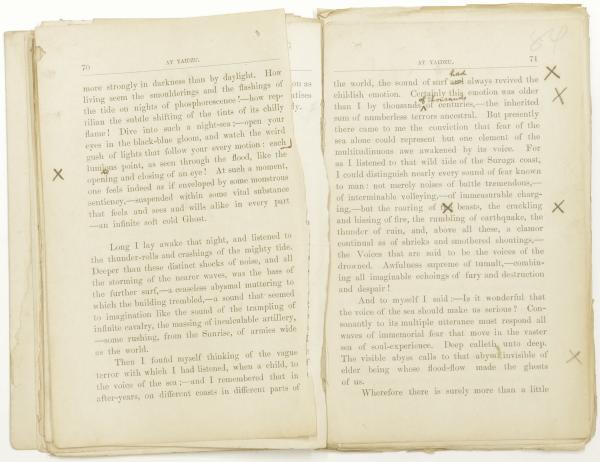 70
AT YAIDZU.
more strongly in darkness than by daylight. How
living seem the smoulderings and the flashings of
the tide on nights of phosphorescence!—how rep-
tilian the subtle shifting of the tints of its chilly
flame! Dive into such a night-sea;—open your
eyes in the black-blue gloom, and watch the weird
gush of lights that follow your every motion: each
luminous point, as seen through the flood, like the
opening and closing of an eye! At such a moment,
one feels indeed as if enveloped by some monstrous
sentiency,—suspended within some vital substance
that feels and sees and wills alike in every part
—an infinite soft cold Ghost.
Long I lay awake that night, and listened to
the thunder-rolls and crashings of the mighty tide.
Deeper than these distinct shocks of noise, and all
the storming of the nearer waves, was the bass of
the further surf,—a ceaseless abysmal muttering to
which the building trembled,—a sound that seemed
to imagination like the sound of the trampling of
infinite cavalry, the massing of incalculable artillery,
—some rushing, from the Sunrise, of armies wide
as the world.
Then I found myself thinking of the vague
terror with which I had listened, when a child, to
the voice of the sea;—and I remembered that in
after-years, on different coasts in different parts of
on as
dy.
AT YAIDZU.
71
64
had
the world, the sound of surf always revived the
childish emotion. Certainly this emotion was older
of thousands
than I by thousands of centuries,—the inherited
sum of numberless terrors ancestral. But presently
there came to me the conviction that fear of the
sea alone could represent but one element of the
multitudinous awe awakened by its voice. For
as I listened to that wild tide of the Suruga coast,
I could distinguish nearly every sound of fear known
to man: not merely noises of battle tremendous,—
of interminable volleying,—of immeasurable charg-
ing,—but the roaring of beasts, the crackling
and hissing of fire, the rumbling of earthquake, the
thunder of ruin, and, above all these, a clamor
continual as of shrieks and smothered shoutings,—
the Voices that are said to be the voices of the
drowned. Awfulness supreme of tumult,—combin-
ing all imaginable echoings of fury and destruction
and despair!
And to myself I said:—Is it wonderful that
the voice of the sea should make us serious? Con-
sonantly to its multiple utterance must respond all
waves of immemorial fear that move in the vaster
sea of soul-experience. Deep calleth unto deep.
The visible abyss calls to that abyss invisible of
elder being whose flood-flow made the ghosts
of us.
Wherefore there is surely more than a little